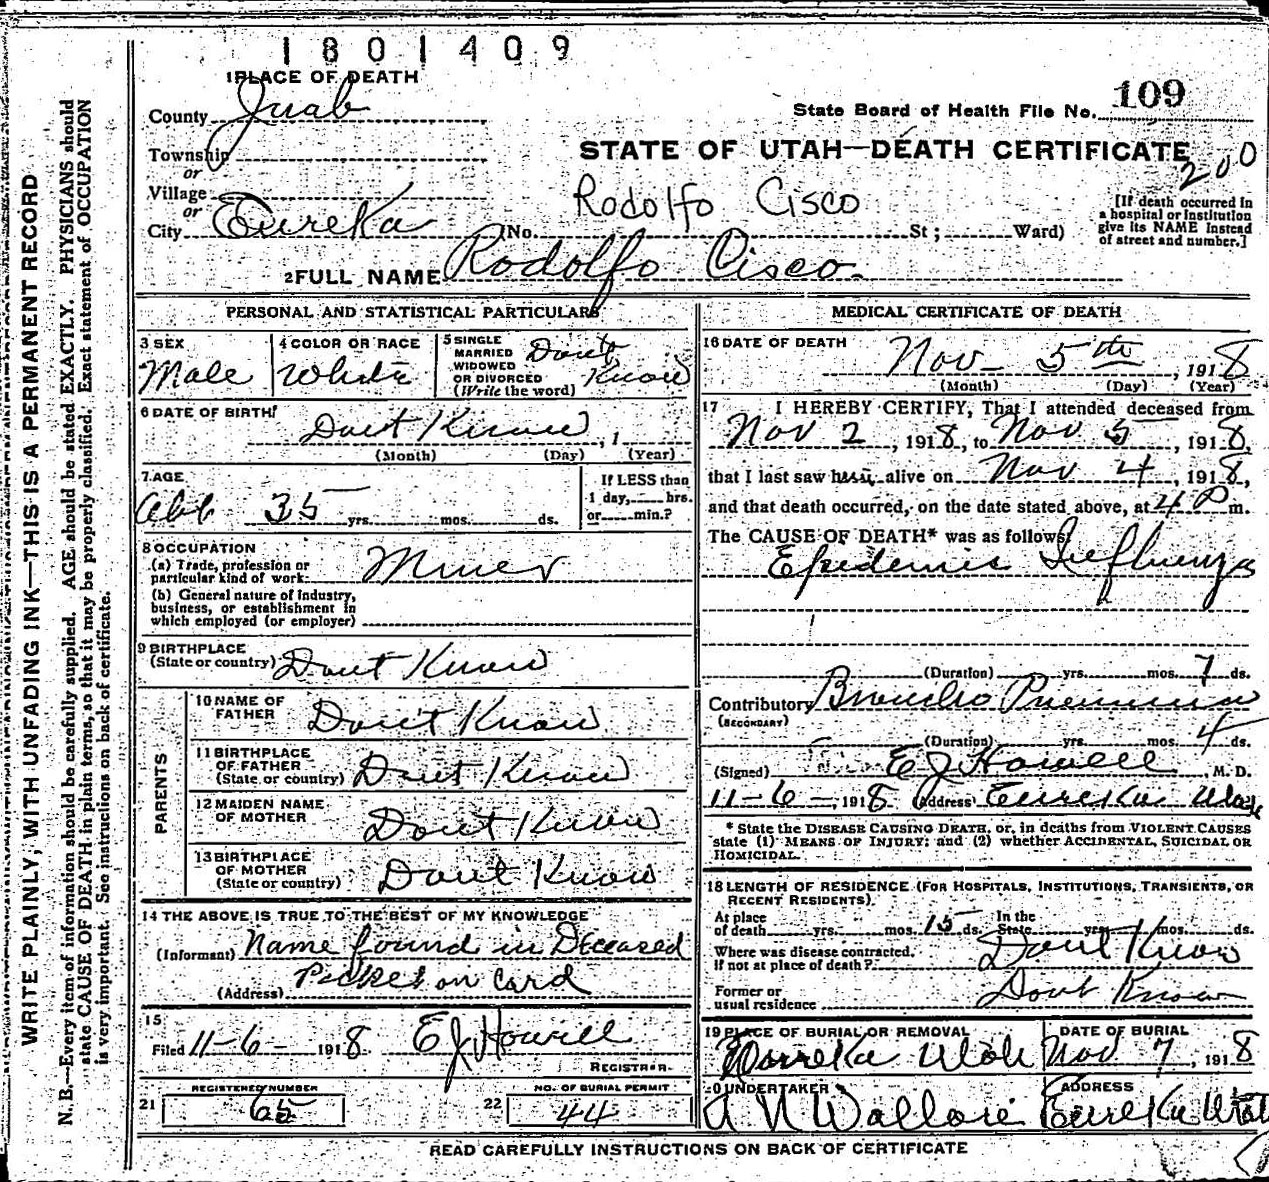 1801409
1 PLACE OF DEATH
County Juab
State Board of Health File No. 109
Township
or
STATE OF UTAH—DEATH CERTIFICATE
200
Village
or
Rodolfo Cisco
City Eureka No. St; Ward)
[If death occurred in
a hospital or institution
give its NAME instead
of street and number.]
2 FULL NAME Rodolfo Cisco.
PERSONAL AND STATISTICAL PARTICULARS
3 SEX
Male
4 COLOR OR RACE
White
5 SINGLE
MARRIED
WIDOWED
OR DIVORCED
(Write the word)
Dont
Know
6 DATE OF BIRTH
Dont Know, 1
(Month) (Day) (Year)
7 AGE
Abt 35 yrs. mos. ds.
If LESS than
1 day, hrs.
or min.?
8 OCCUPATION
(a) Trade, profession or
particular kind of work Miner
(b) General nature of industry,
business, or establishment in
which employed (or employer)
9 BIRTHPLACE
(State or country) Dont Know
PARENTS
10 NAME OF
FATHER Dont Know
11 BIRTHPLACE
OF FATHER
(State or country) Dont Know
12 MAIDEN NAME
OF MOTHER Dont Know
13 BIRTHPLACE
OF MOTHER
(State or country) Dont Know
14 THE ABOVE IS TRUE TO THE BEST OF MY KNOWLEDGE
(Informant) Name found in Deceased
(Address) Picket on Card
15
Filed 11-6- 1918 E J Howell
REGISTRAR.
REGISTERED NUMBER
21 65
NO. OF BURIAL PERMIT
22 44
MEDICAL CERTIFICATE OF DEATH
16 DATE OF DEATH
Nov 5th, 1918
(Month) (Day) (Year)
17 I HEREBY CERTIFY, That I attended deceased from
Nov 2, 1918, to Nov 5, 1918,
that I last saw him alive on Nov 4, 1918,
and that death occurred, on the date stated above, at 4 P m.
The CAUSE OF DEATH* was as follows:
Epidemic Influenza
(Duration) yrs. mos. 7 ds.
Contributory Broncho Pneumonia
(SECONDARY)
(Duration) yrs. mos. 4 ds.
(Signed) E J Howell, M. D.
11-6-, 1918 (Address) Eureka Utah
* State the DISEASE CAUSING DEATH, or, in deaths from VIOLENT CAUSES
state (1) MEANS OF INJURY; and (2) whether ACCIDENTAL, SUICIDAL OR
HOMICIDAL.
18 LENGTH OF RESIDENCE (FOR HOSPITALS, INSTITUTIONS, TRANSIENTS, OR
RECENT RESIDENTS).
At place
of death yrs. mos. 15 ds. In the
State yrs. mos. ds.
Where was disease contracted,
If not at place of death? Dont Know
Former or
usual residence Dont Know
19 PLACE OF BURIAL OR REMOVAL
Eureka Utah
DATE OF BURIAL
Nov 7, 1918
20 UNDERTAKER
A N Wallace
ADDRESS
Eureka Utah
READ CAREFULLY INSTRUCTIONS ON BACK OF CERTIFICATE
WRITE PLAINLY, WITH UNFADING INK—THIS IS A PERMANENT RECORD
N. B.—Every item of information should be carefully supplied. AGE should be stated EXACTLY. PHYSICIANS should
state CAUSE OF DEATH in plain terms, so that it may be properly classified. Exact statement of OCCUPATION
is very important. See instructions on back of certificate.